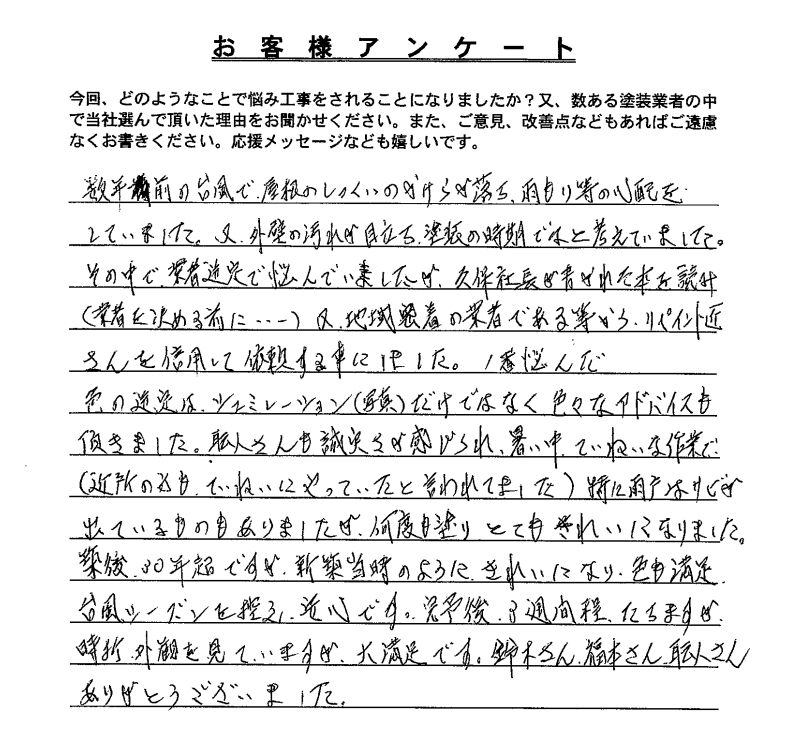 お客様アンケート
今回、どのようなことで悩み工事をされることになりましたか?又、数ある塗装業者の中
で当社選んで頂いた理由をお聞かせください。また、ご意見、改善点などもあればご遠慮
なくお書きください。応援メッセージなども嬉しいです。
数年前の台風で、屋根のしっくいのかけらが落ち、雨もり等の心配を
していました。又、外壁の汚れが目立ち、塗装の時期ではと考えていました。
その中で、業者選定で悩んでいましたが、久保社長が書かれた本を読み
(業者を決める前に・・・) 又、地域密着の業者である等から、リペイント匠
さんを信用して依頼する事にしました。1番悩んだ
色の選定は、シュミレーション(写真)だけではなく色々なアドバイスも
頂きました。職人さんも誠実さが感じられ、暑い中、ていねいな作業で
(近所の方も、ていねいにやっていたと言われてました) 特に雨戸はサビが
出ているものもありましたが、何度も塗りとてもきれいになりました。
築後、30年超ですが、新築当時のようにきれいになり、色も満足、
台風シーズンを控え、安心です。完了後、3週間程、たちますが、
時折、外観を見ていますが、大満足です。鈴木さん、福本さん、職人さん
ありがとうございました。